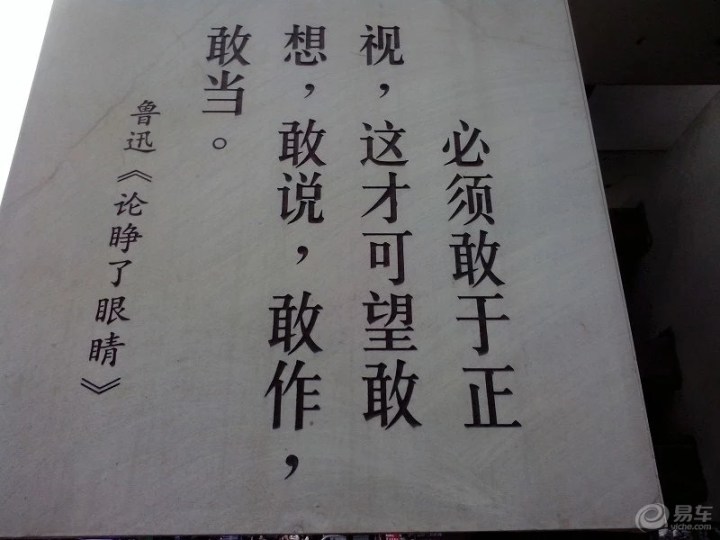 必须敢于正
视，这才可望敢
想，敢说，敢作，
敢当。
鲁迅《论睁了眼睛》
易车
yiche.com